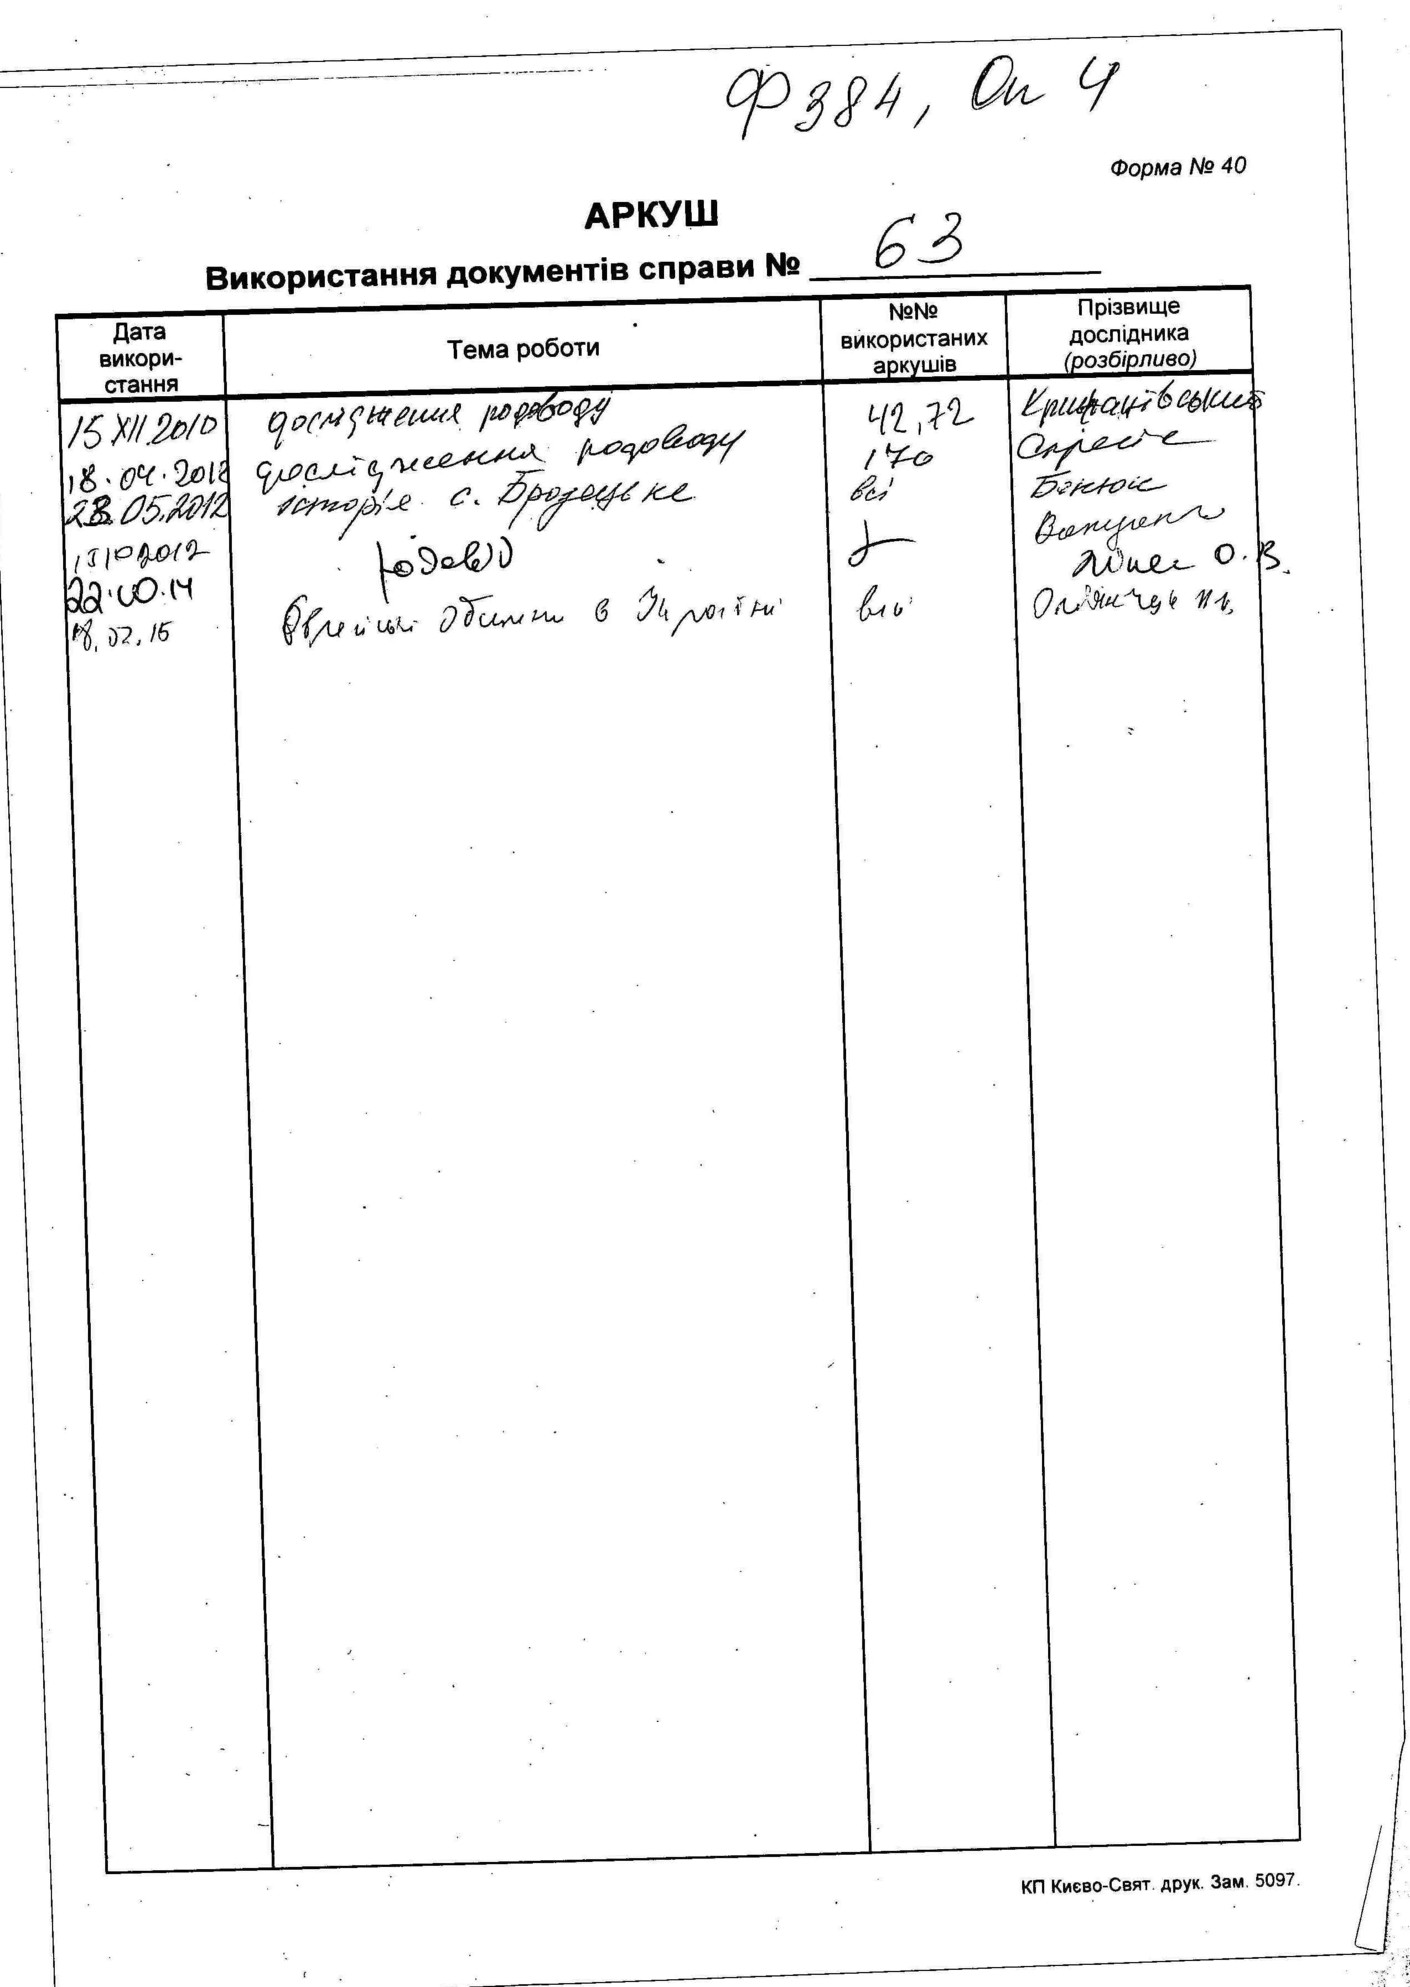 Ф 384, Оп 4
Форма № 40
АРКУШ
Використання документів справи № 63
Дата викори-стання
Тема роботи
№№ використаних аркушів
Прізвище дослідника (розбірливо)
15 XII 2010 дослідження родоводу 42, 72
18.04.2012 дослідження родоводу 170
23.05.2012 історія с. Бродецьке всі
15 10 2012
22.10.14 родовід О.В.
18.02.15 Єврейські общини в Україні всі
КП Києво-Свят. друк. Зам. 5097.